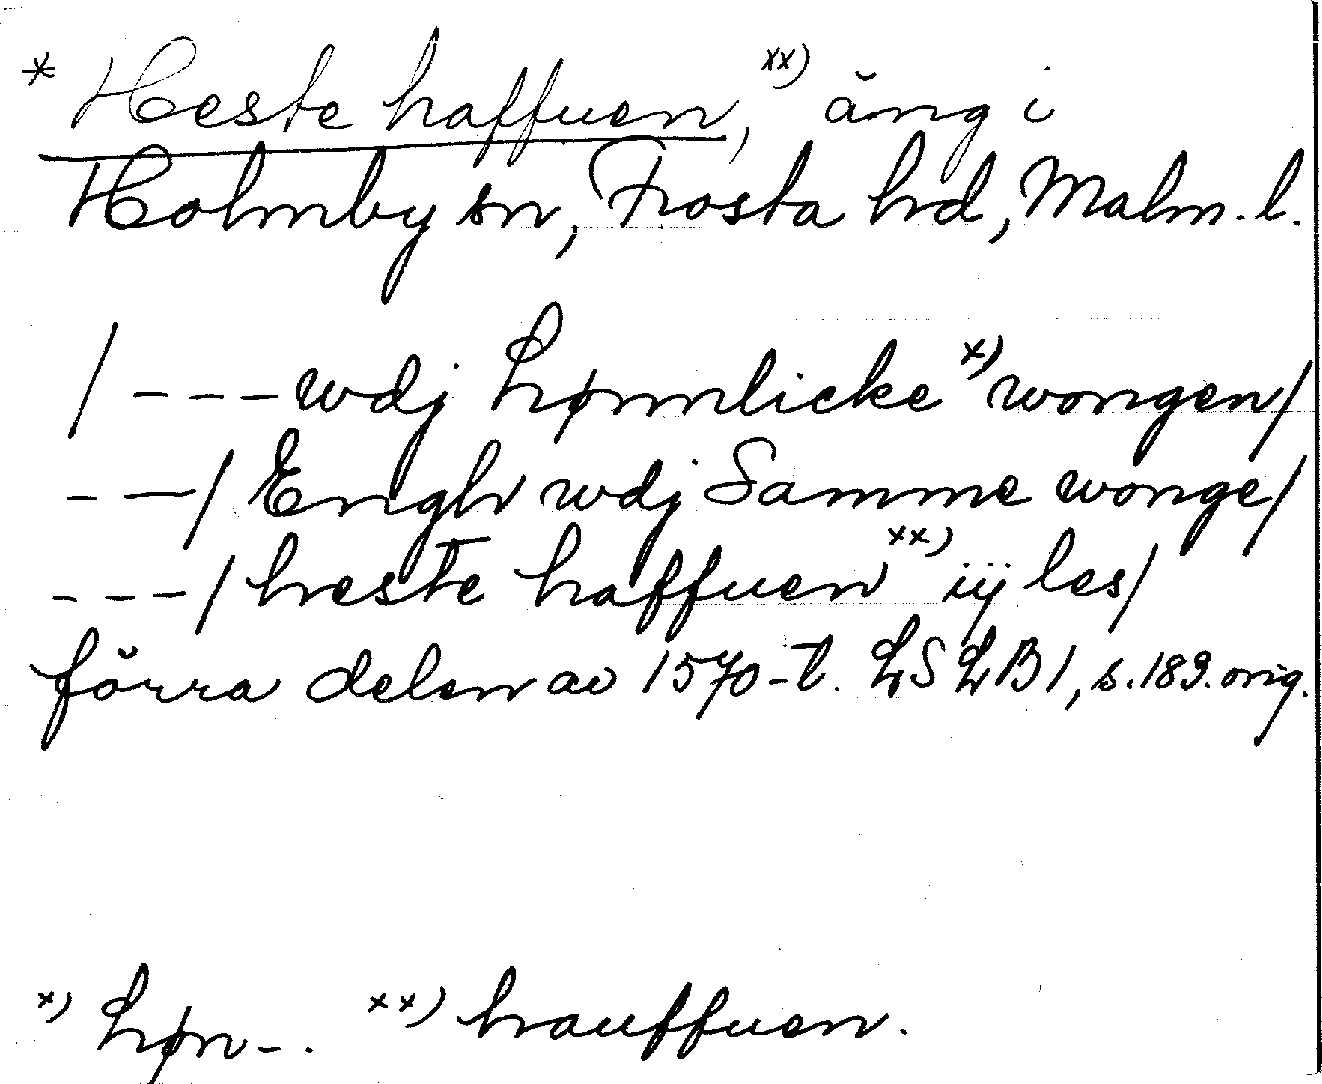 * Heste haffuen,xx) äng i
Holmby sn, Frosta hd, Malm. l.
/ --- wdj hønnlicke x) wongen/
---/ Engh wdj Samme wonge/
---/ heste haffuen xx) iij les/
förra delen av 1570-t. LSLB1, s. 189. orig.
x) høn-. xx) hauffuen.